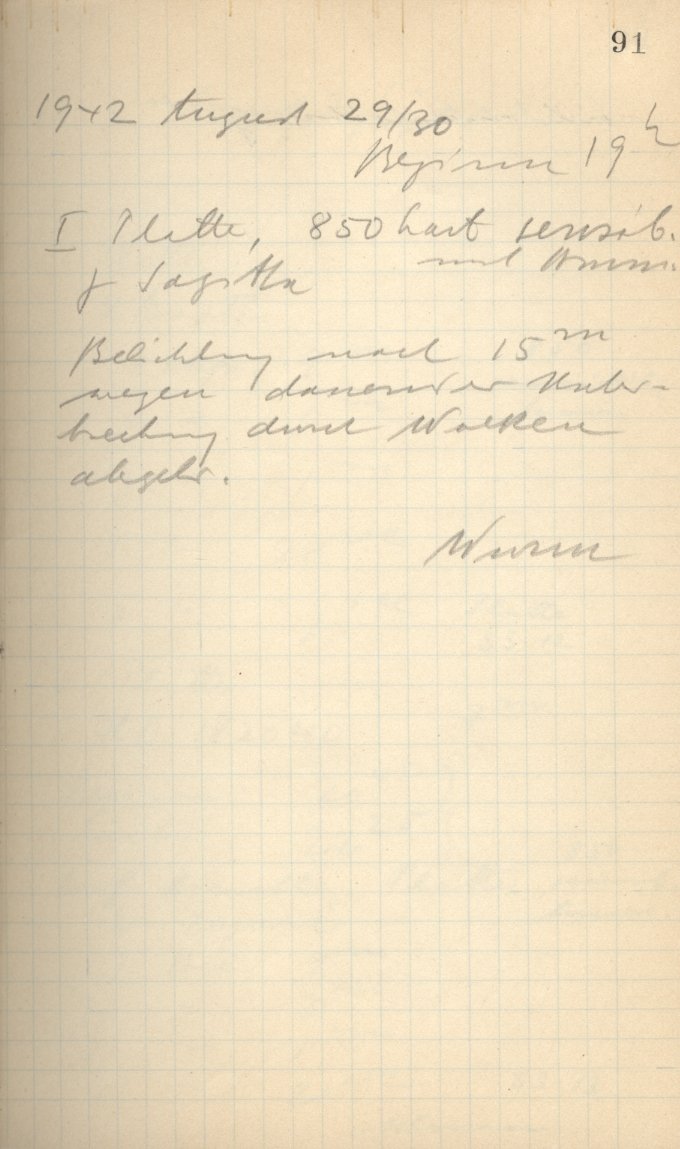 91
1942 August 29/30
Beginn 19h
I Platte, 850 hart sensib.
mit Amm.
γ Sagitta
Belichtung nach 15m
wegen dauernder Unter-
brechung durch Wolken
abgebr.
Wurm